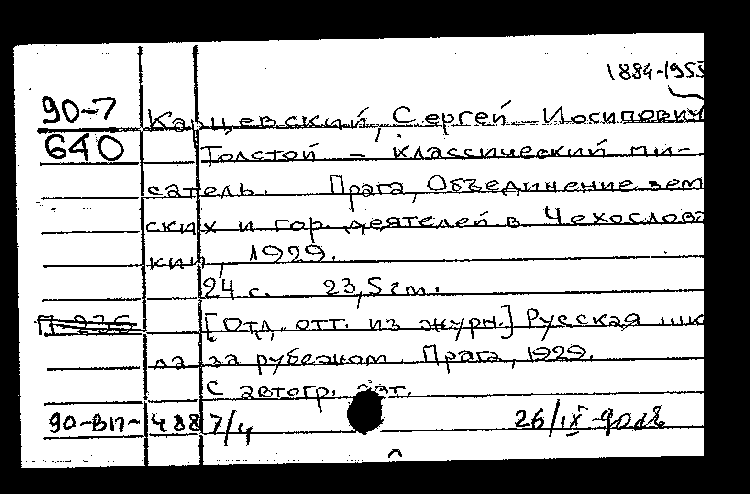 1884-1955
90-7
640
Карцевский, Сергей Иосипович
Толстой - классический пи-
сатель. Прага, Объединение зем
ских и гор. деятелей в Чехослова
кии, 1929.
24 с. 23,5 см.
[Отд. отт. из журн.] Русская шко
ла за рубежом. Прага, 1929.
С автогр. авт.
90-ВП-488 7/4 26/IX-90